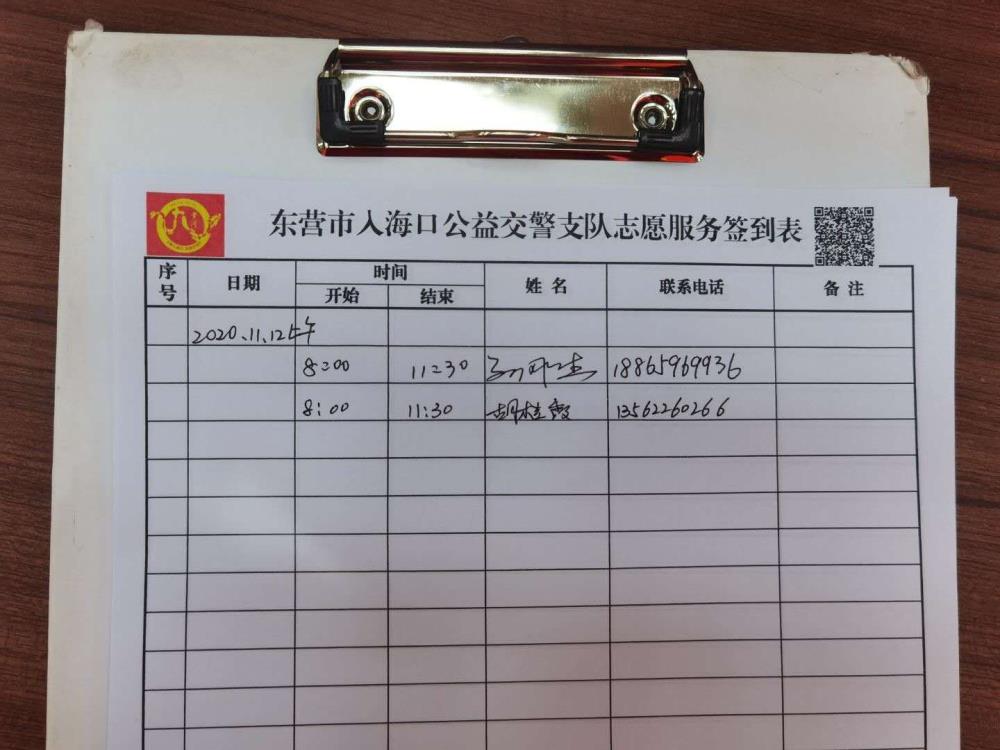 东营市入海口公益交警支队志愿服务签到表
序号 日期 时间 姓名 联系电话 备注
开始 结束
2020.11.12上午
8:00 11:30 18865969936
8:00 11:30 胡桂霞 13562260266